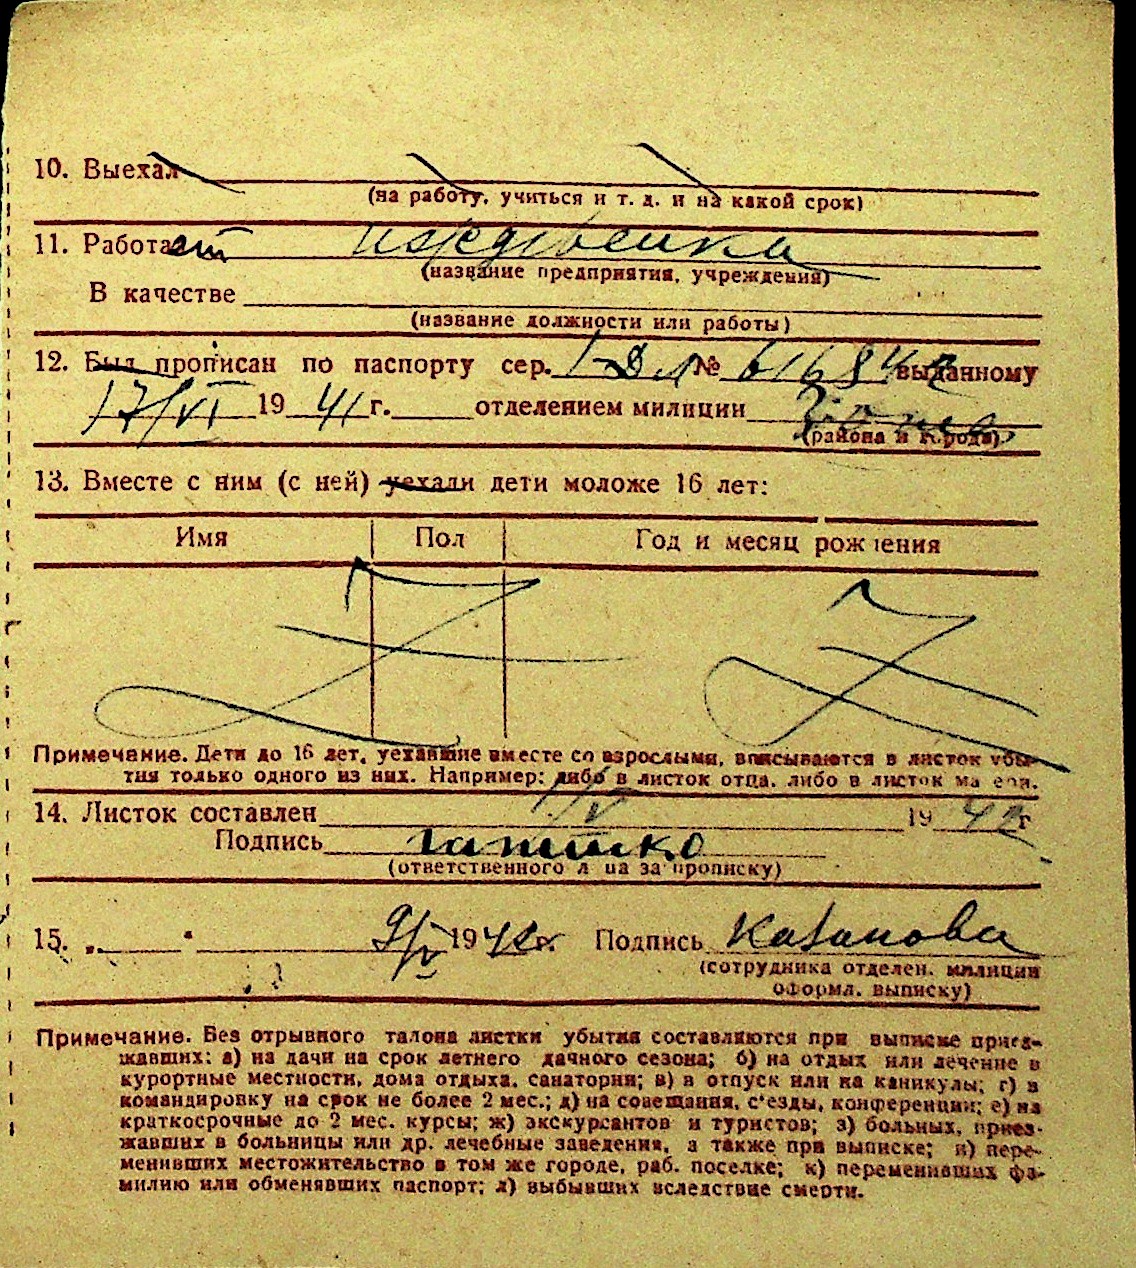 10. Выехал
(на работу, учиться и т. д. и на какой срок)
11. Работает иждивенка
(название предприятия, учреждения)
В качестве
(название должности или работы)
12. Был прописан по паспорту сер. № выданному
17/VI 19 41 г. отделением милиции
(района и города)
13. Вместе с ним (с ней) уехали дети моложе 16 лет:
Имя Пол Год и месяц рождения
Z Z
Примечание. Дети до 16 лет, уехавшие вместе со взрослыми, вписываются в листок убы-
тия только одного из них. Например: либо в листок отца, либо в листок матери.
14. Листок составлен 1/V 19 42 г
Подпись
(ответственного лица за прописку)
15. „ “ 9/V 19 42 г. Подпись Казанова
(сотрудника отделен. милиции
оформл. выписку)
Примечание. Без отрывного талона листки убытия составляются при выписке приез-
жавших: а) на дачи на срок летнего дачного сезона; б) на отдых или лечение в
курортные местности, дома отдыха, санатории; в) в отпуск или на каникулы; г) в
командировку на срок не более 2 мес.; д) на совещания, с'езды, конференции; е) на
краткосрочные до 2 мес. курсы; ж) экскурсантов и туристов; з) больных, приез-
жавших в больницы или др. лечебные заведения, а также при выписке; и) пере-
менивших местожительство в том же городе, раб. поселке; к) переменивших фа-
милию или обменявших паспорт; л) выбывших вследствие смерти.